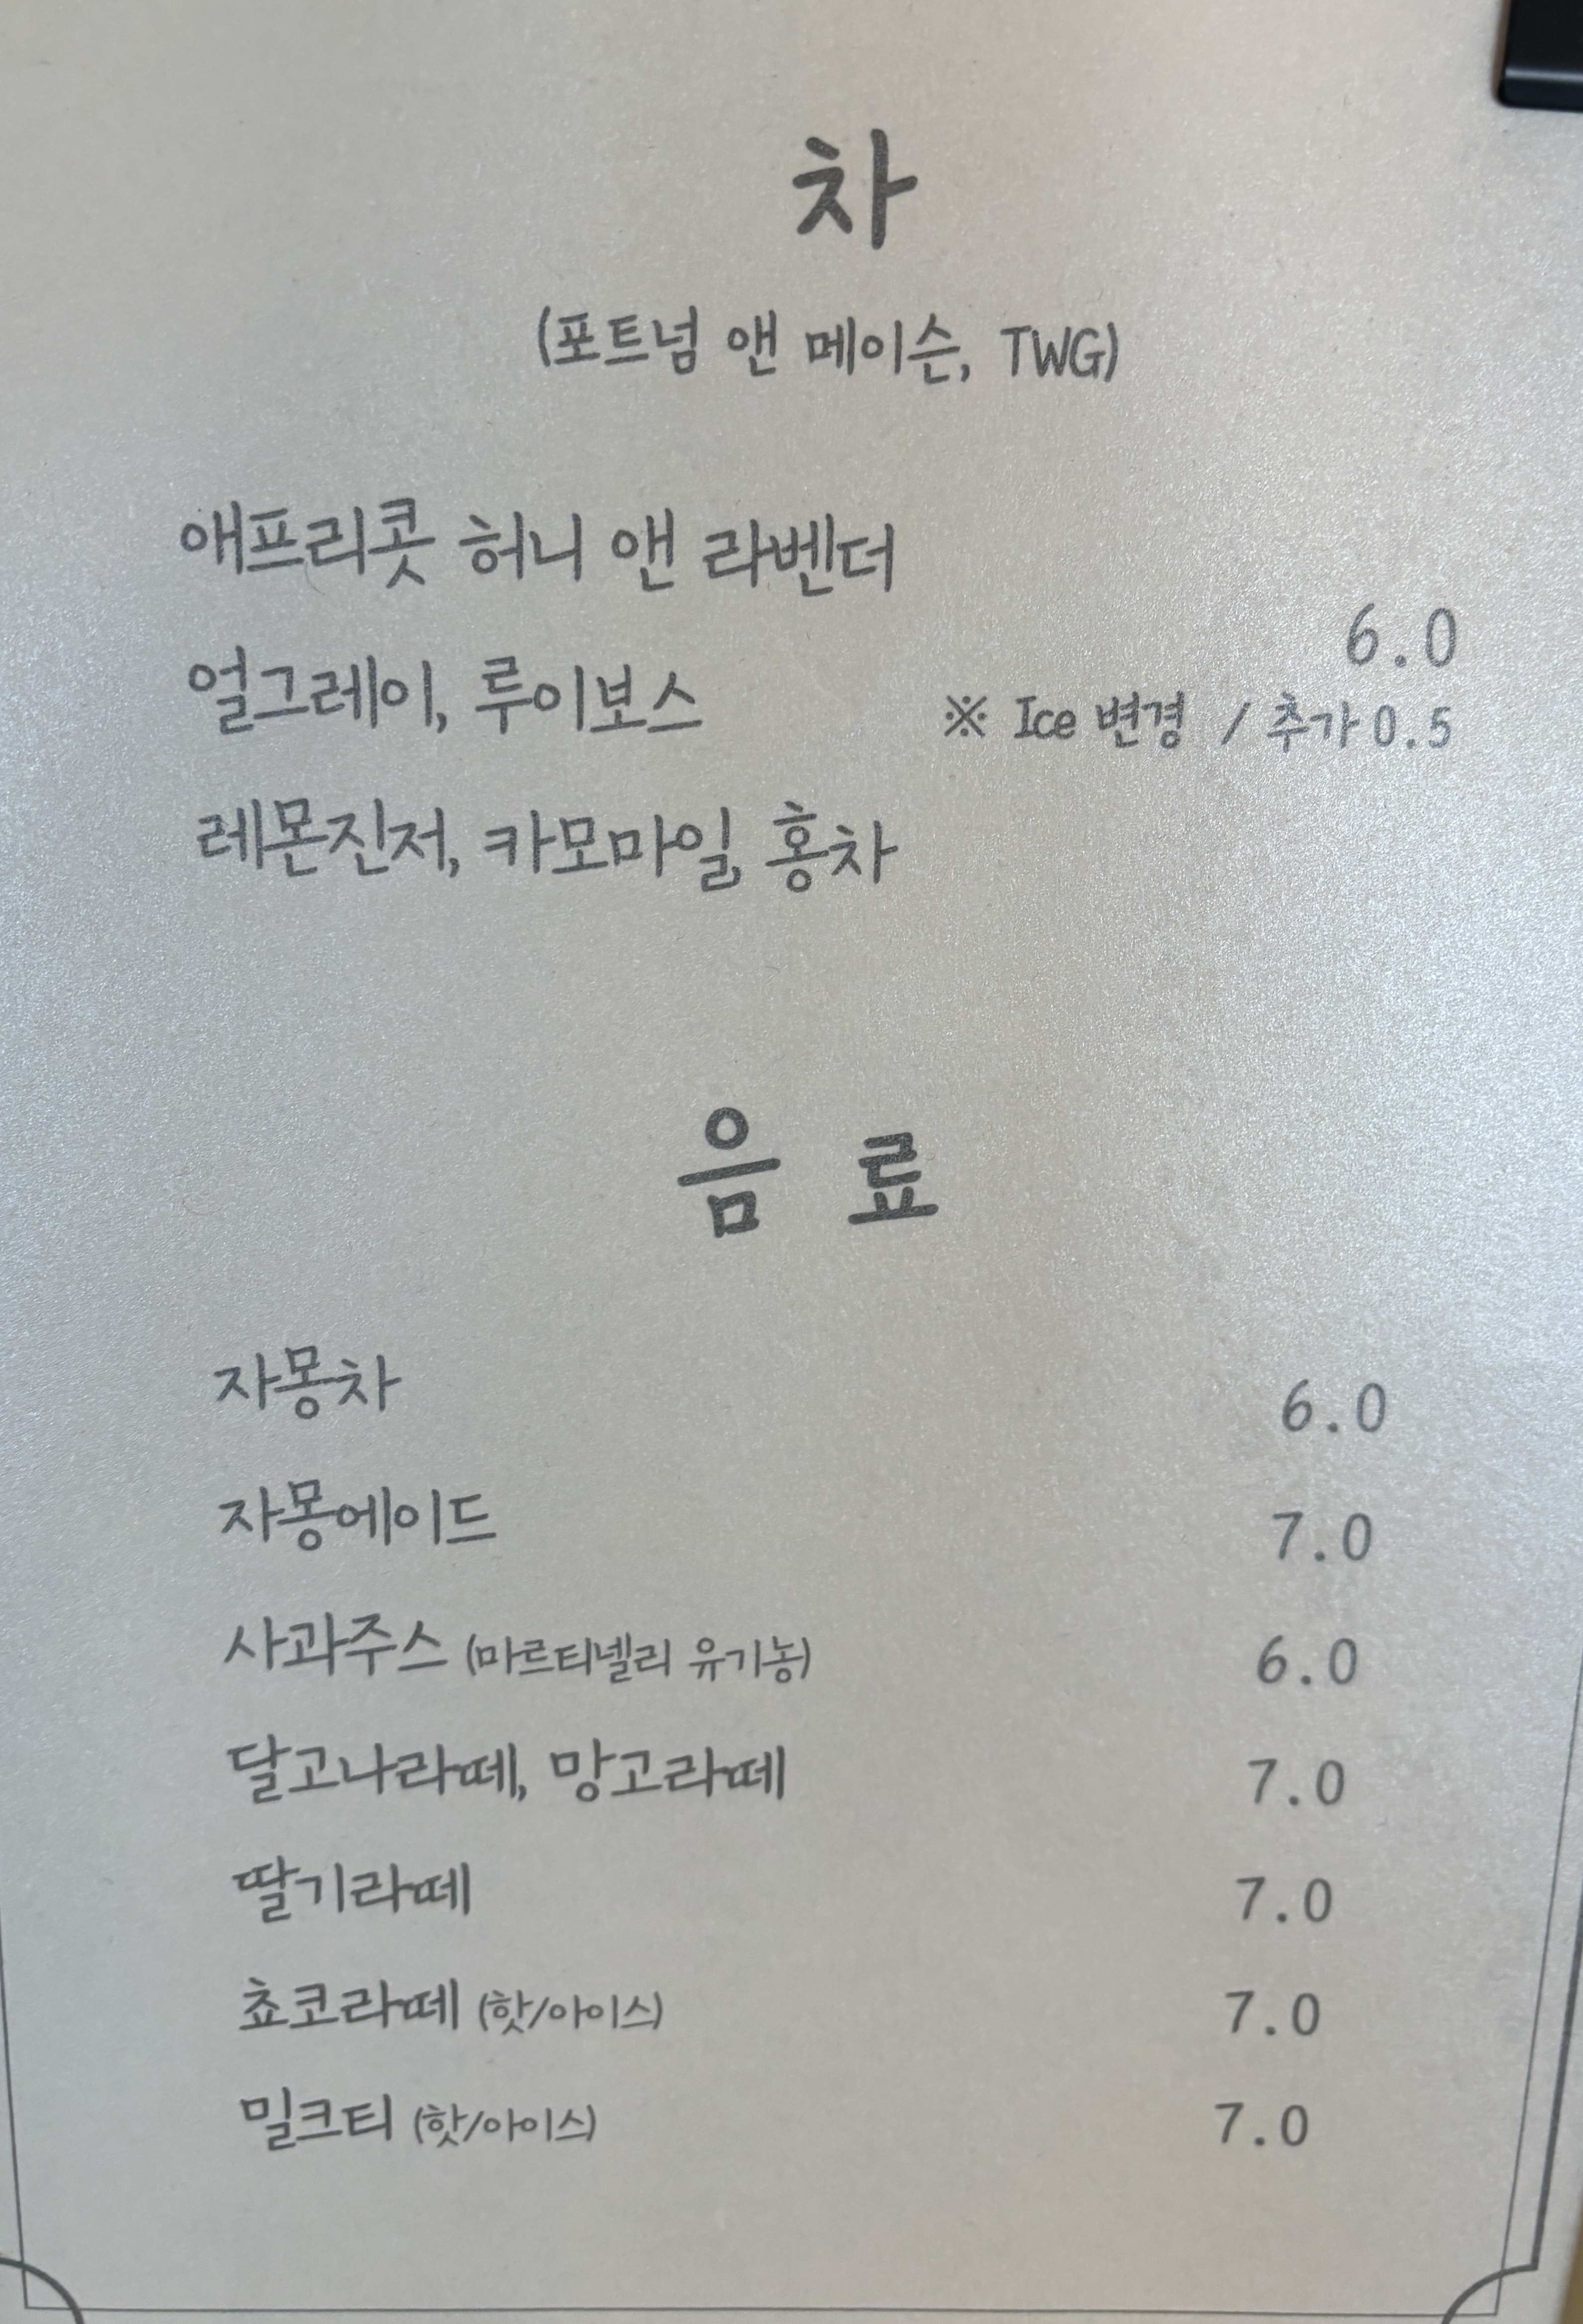 차
(포트넘 앤 메이슨, TWG)
애프리콧 허니 앤 라벤더
6.0
얼그레이, 루이보스
※ Ice 변경 / 추가 0.5
레몬진저, 카모마일, 홍차
음 료
자몽차 6.0
자몽에이드 7.0
사과주스 (마르티넬리 유기농) 6.0
달고나라떼, 망고라떼 7.0
딸기라떼 7.0
쵸코라떼 (핫/아이스) 7.0
밀크티 (핫/아이스) 7.0